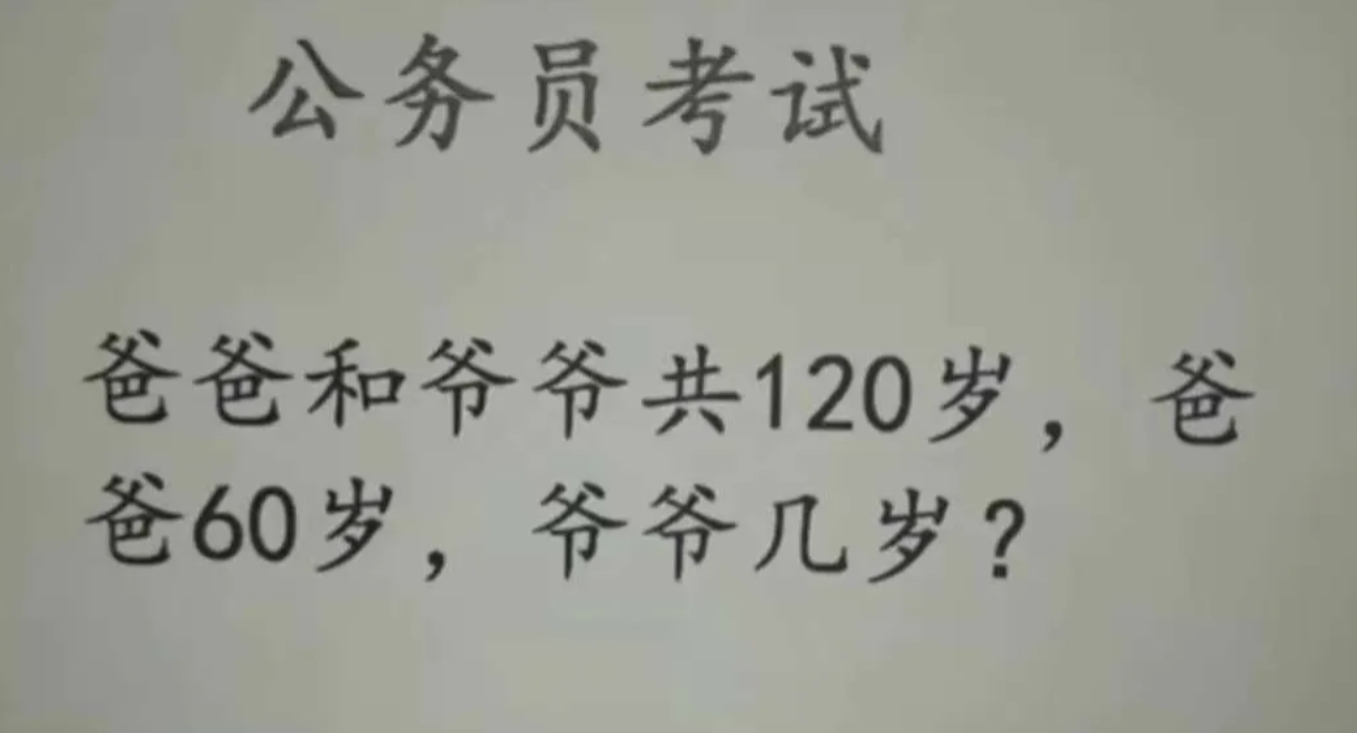 公务员考试
爸爸和爷爷共120岁，爸
爸60岁，爷爷几岁？